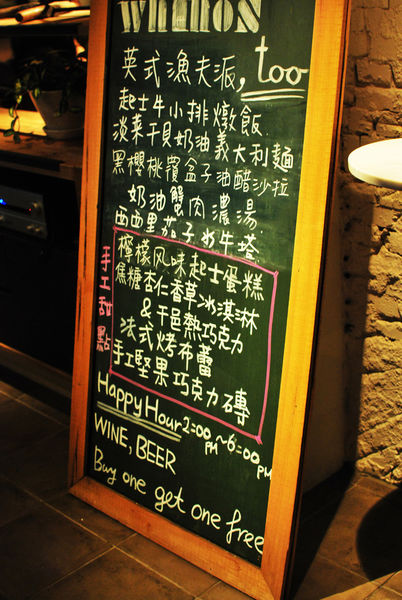 too
英式漁夫派,
起士牛小排燉飯.
淡菜干貝奶油義大利麵
黑櫻桃覆盆子油醋沙拉
奶油蟹肉濃湯.
西西里茄子水牛塔.
手工甜點
檸檬风味起士蛋糕
焦糖杏仁香草冰淇淋
& 干邑熱巧克力
法式烤布蕾
手工堅果巧克力磚
Happy Hour 2:00 PM ~ 6:00 PM
WINE, BEER
Buy one get one free